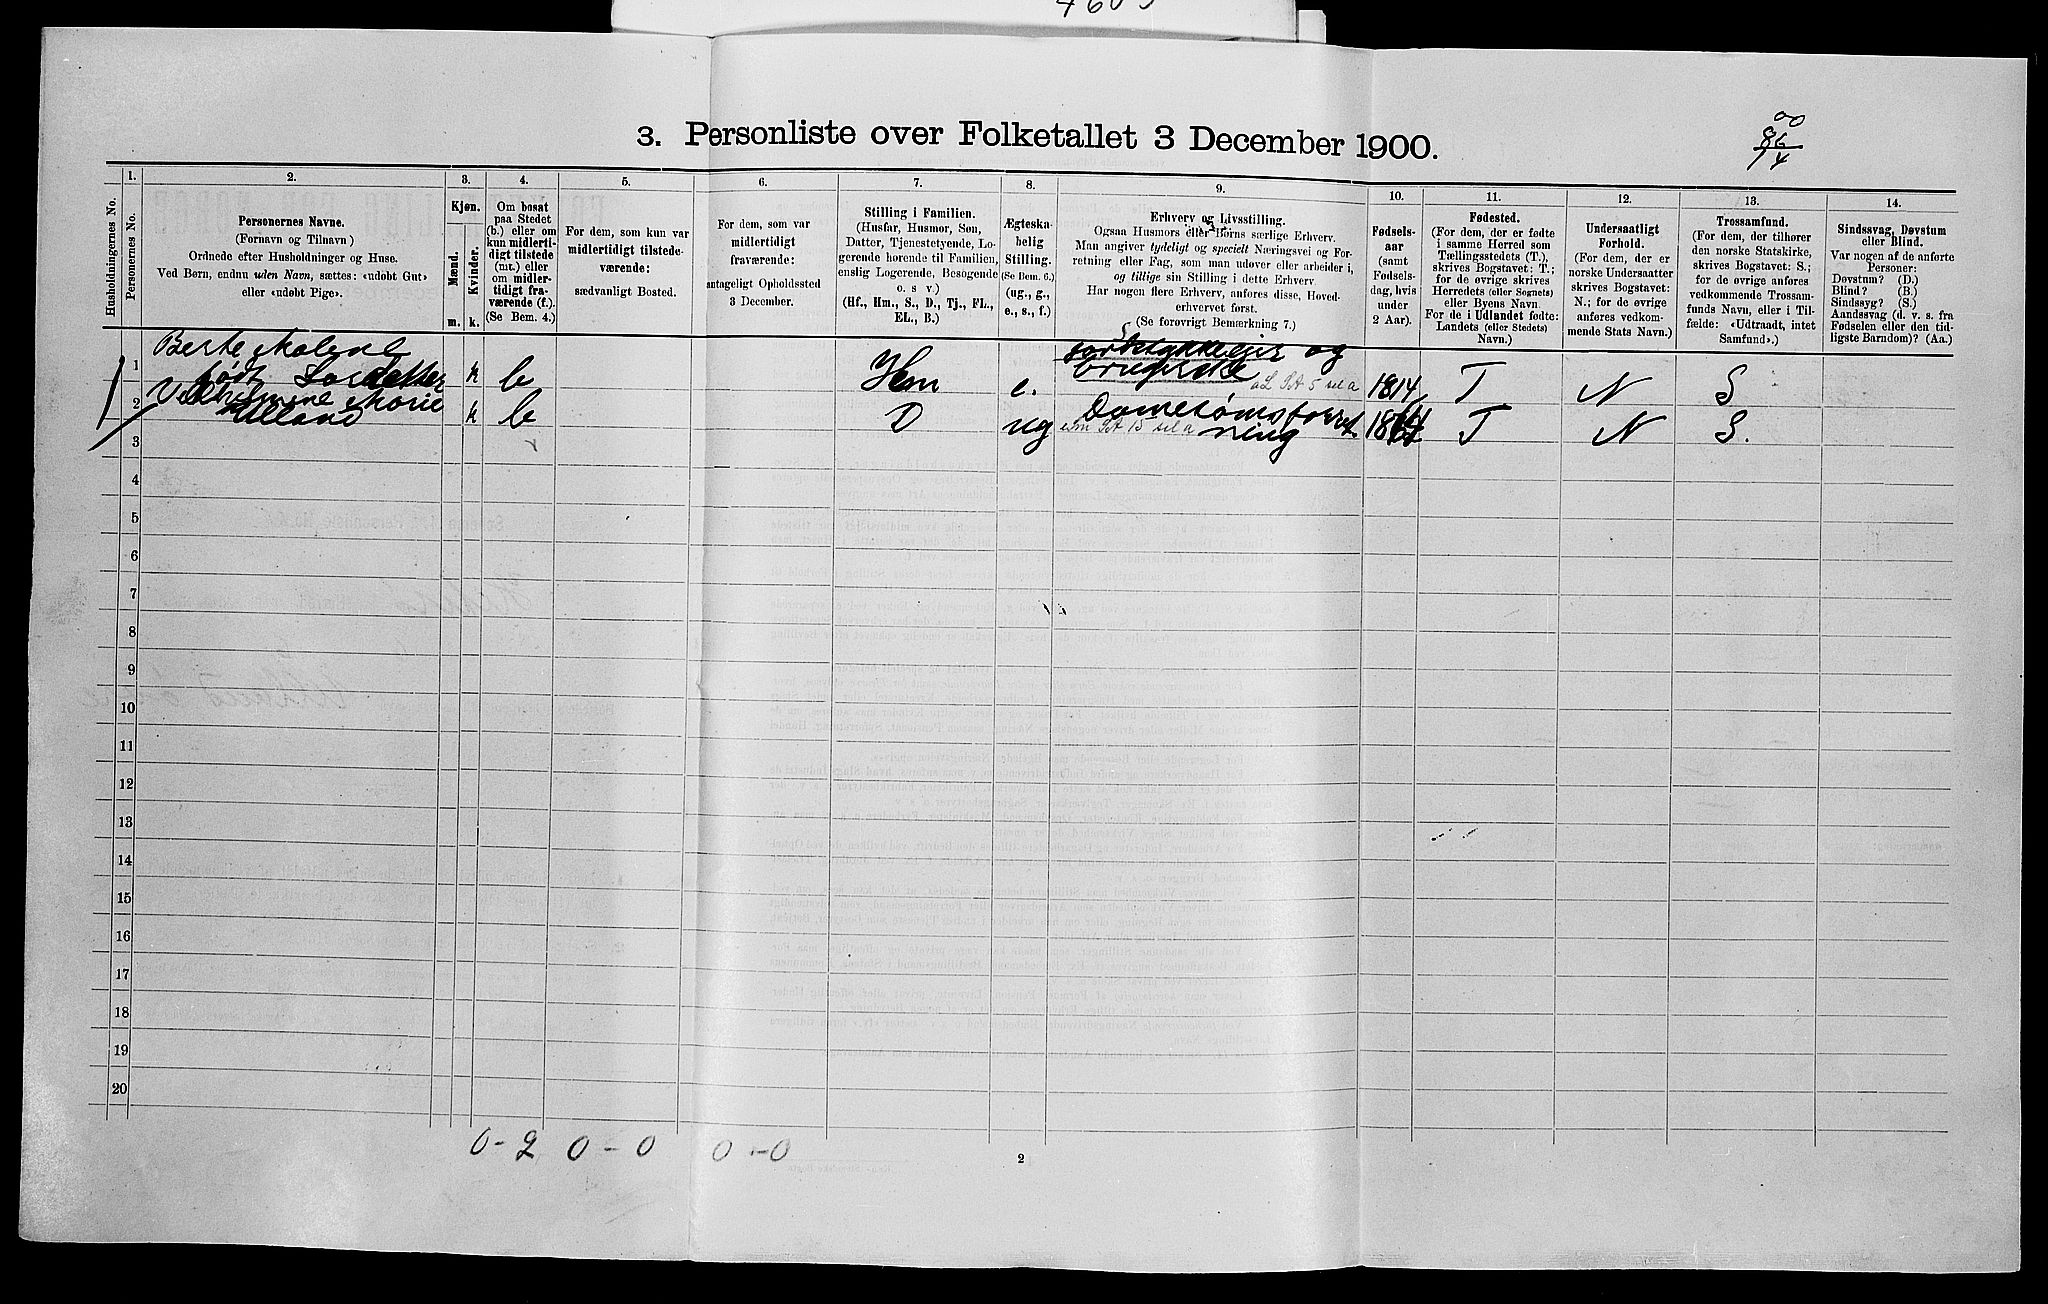 3. Personliste over Folketallet 3 December 1900.
00
86
14
1. 2. 3. 4. 5. 6. 7. 8. 9. 10. 11. 12. 13. 14.
Husholdningernes No.
Personernes No.
Personernes Navne.
(Fornavn og Tilnavn)
Ordnede efter Husholdninger og Huse.
Ved Børn, endnu uden Navn, sættes: «udøbt Gut»
eller «udøbt Pige».
Kjøn.
Mænd.
Kvinder.
m. k.
Om bosat
paa Stedet
(b.) eller om
kun midlerti-
digt tilstede
(mt.) eller
om midler-
tidigt fra-
værende (f.).
(Se Bem. 4.)
For dem, som kun var
midlertidigt tilstede-
værende:
sædvanligt Bosted.
For dem, som var
midlertidigt
fraværende:
antageligt Opholdssted
3 December.
Stilling i Familien.
(Husfar, Husmor, Søn,
Datter, Tjenestetyende, Lo-
gerende hørende til Familien,
enslig Logerende, Besøgende
o. s v.)
(Hf., Hm., S., D., Tj., FL.,
EL., B.)
Ægteska-
belig
Stilling.
(Se Bem. 6.)
(ug., g.,
e., s., f.)
Erhverv og Livsstilling.
Ogsaa Husmors eller Børns særlige Erhverv.
Man angiver tydeligt og specielt Næringsvei og For-
retning eller Fag, som man udøver eller arbeider i,
og tillige sin Stilling i dette Erhverv.
Har nogen flere Erhverv, anføres disse, Hoved-
erhvervet først.
(Se forøvrigt Bemærkning 7.)
Fødsels-
aar
(samt
Fødsels-
dag, hvis
under
2 Aar).
Fødested.
(For dem, der er fødte
i samme Herred som
Tællingsstedets (T.),
skrives Bogstavet: T.;
for de øvrige skrives
Herredets (eller Sognets)
eller Byens Navn.
For de i Udlandet fødte:
Landets (eller Stedets)
Navn.)
Undersaatligt
Forhold.
(For dem, der er
norske Undersaatter
skrives Bogstavet:
N.; for de øvrige
anføres vedkom-
mende Stats Navn.)
Trossamfund.
(For dem, der tilhører
den norske Statskirke,
skrives Bogstavet: S.;
for de øvrige anføres
vedkommende Trossam-
funds Navn, eller i Til-
fælde: «Udtraadt, intet
Samfund».)
Sindssvag, Døvstum
eller Blind.
Var nogen af de anførte
Personer:
Døvstum? (D.)
Blind? (B.)
Sindssyg? (S.)
Aandssvag (d. v. s. fra
Fødselen eller den tid-
ligste Barndom)? (Aa.)
1 Berte Malene
født Larsdatter k b Hm e. og 1814 T N S
2 Vilhelmine Marie
Ulland k b D ug Damesømsforret-
ning T N S.
3
4
5
6
7
8
9
10
11
12
13
14
15
16
17
18
19
20
0-2 0-0 0-0
2